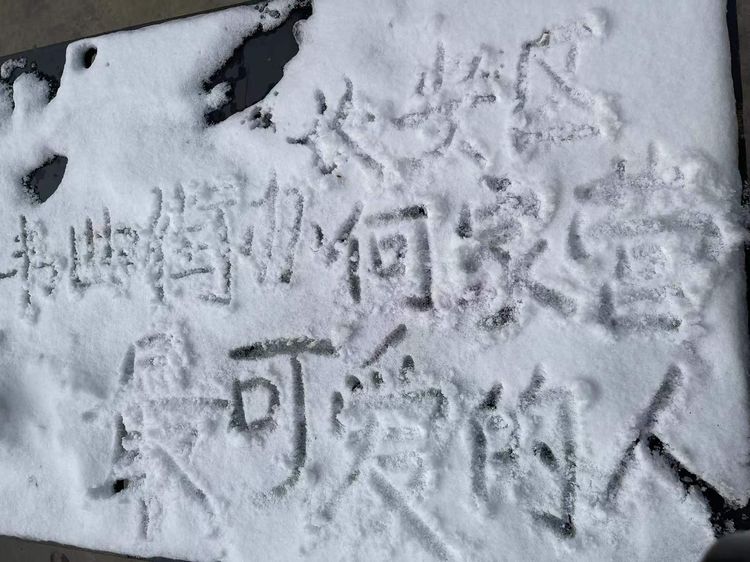 长安区
韦曲街办何家营
最可爱的人